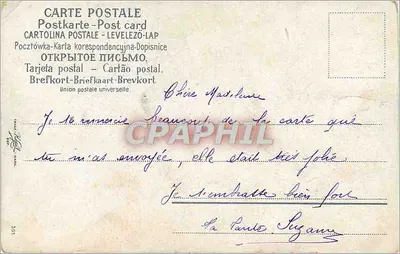 CARTE POSTALE
Postkarte - Post card
CARTOLINA POSTALE - LEVELEZŐ-LAP
Pocztówka-Karta korespondencyjna-Dopisnice
ОТКРЫТОЕ ПИСЬМО.
Tarjeta postal - Cartão postal.
Brefkort-Briefkaart-Brevkort
Union postale universelle
Chère Madeleine
Je te remercie beaucoup de la carte que
tu m'as envoyée, elle était très jolie.
Je t'embrasse bien fort
ta tante Suzanne
CPARAMA